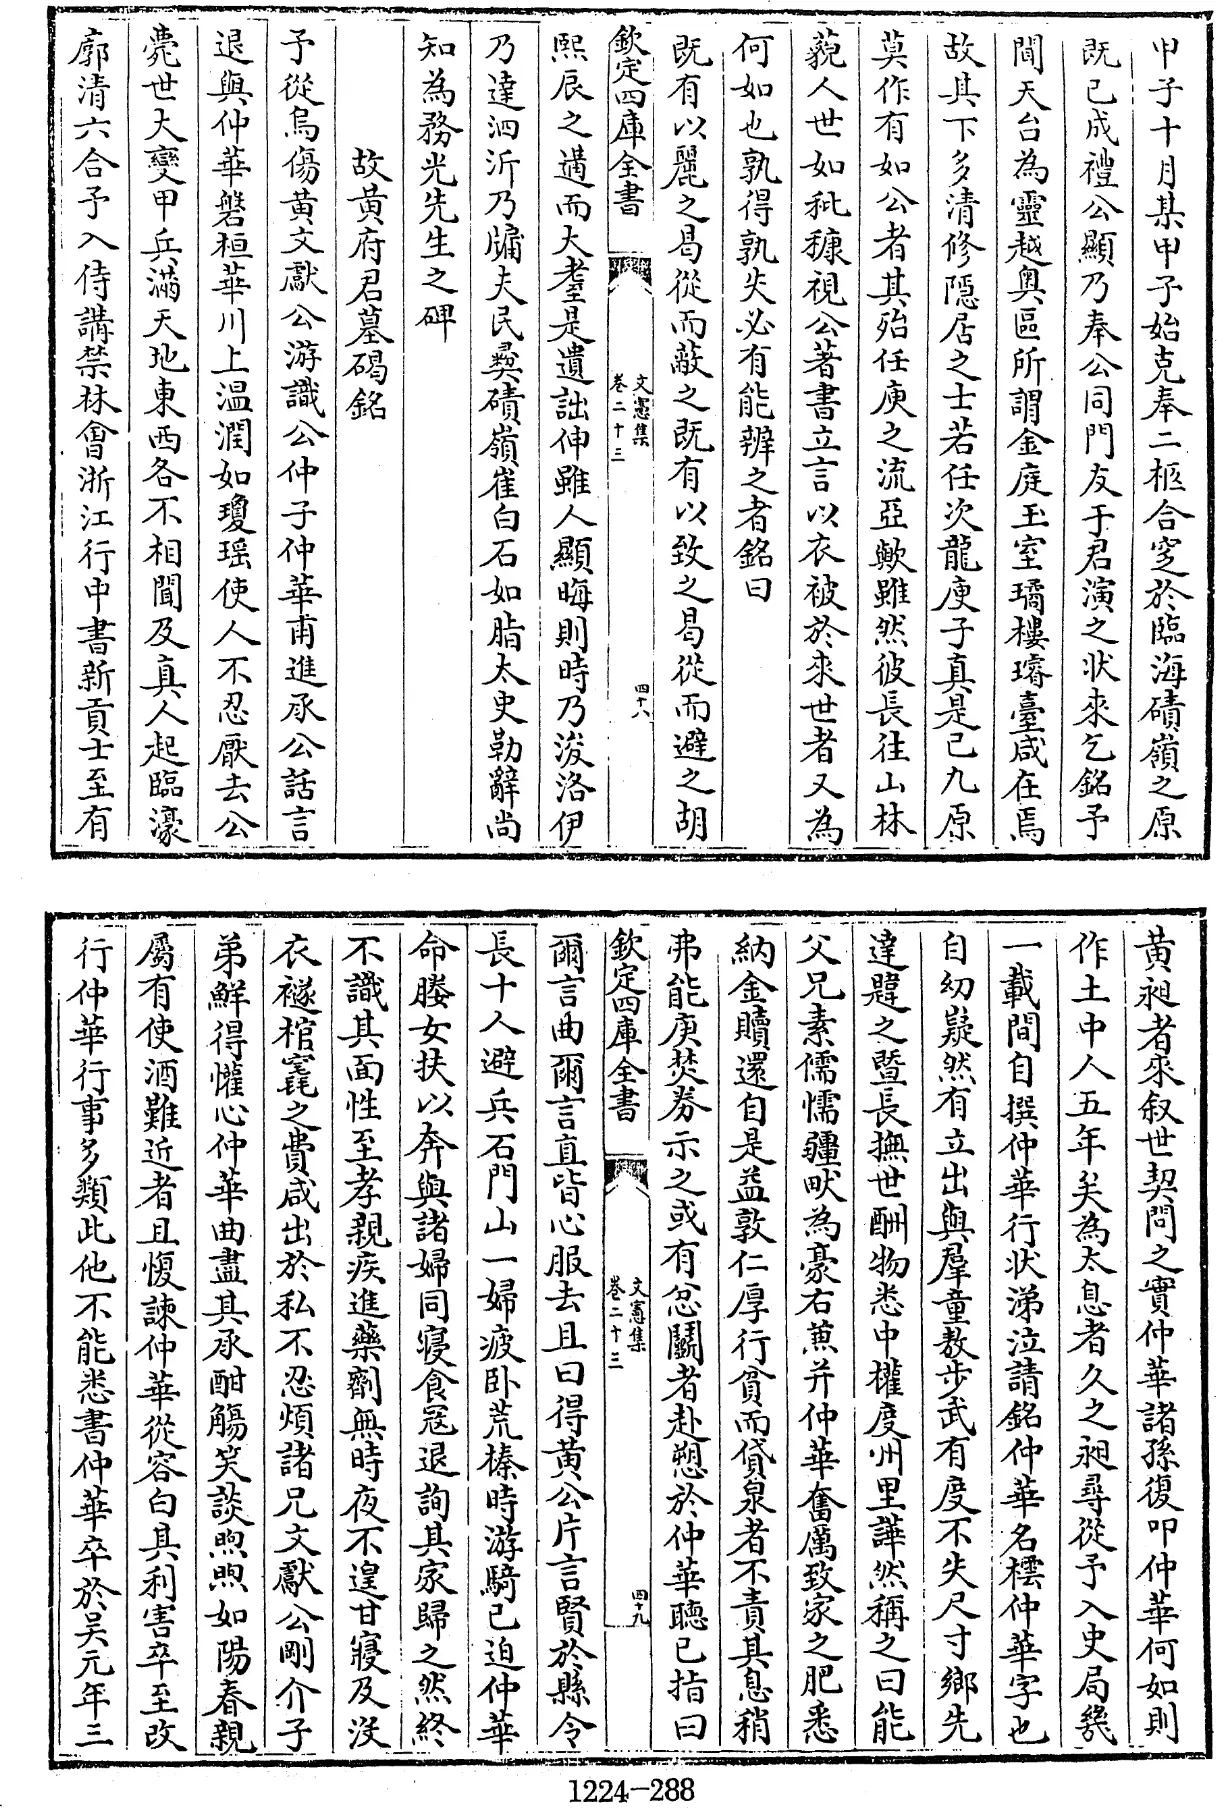 甲子十月某甲子始克奉二柩合窆於臨海磧嶺之原
既已成禮公顯乃奉公同門友于君演之狀來乞銘予
聞天台為靈越奥區所謂金庭玉室璚樓璿臺咸在焉
故其下多清修隱居之士若任次龍庾子真是已九原
莫作有如公者其殆任庾之流亞歟雖然彼長往山林
藐人世如秕穅視公著書立言以衣被於來世者又為
何如也孰得孰失必有能辨之者銘曰
既有以麗之曷從而蔽之既有以致之曷從而避之胡
欽定四庫全書
文憲集
卷二十三
四十八
熙辰之遘而大耋是遺詘伸雖人顯晦則時乃浚洛伊
乃達泗沂乃牗夫民彞磧嶺崔白石如脂太史勒辭尚
知為務光先生之碑
故黄府君墓碣銘
予從烏傷黄文獻公游識公仲子仲華甫進承公話言
退與仲華磐桓華川上温潤如瓊瑶使人不忍厭去公
薨世大變甲兵滿天地東西各不相聞及真人起臨濠
廓清六合予入侍講禁林會浙江行中書新貢士至有
黄昶者來叙世契問之實仲華諸孫復叩仲華何如則
作土中人五年矣為太息者久之昶尋從予入史局幾
一載間自撰仲華行狀涕泣請銘仲華名橒仲華字也
自幼嶷然有立出與羣童敖步武有度不失尺寸鄉先
達韙之暨長撫世酬物悉中權度州里譁然稱之曰能
父兄素儒懦疆畎為豪右蒹并仲華奮厲致家之肥悉
納金贖還自是益敦仁厚行貧而貸泉者不責其息稍
弗能庚焚券示之或有忿鬭者赴愬於仲華聽已指曰
欽定四庫全書
文憲集
卷二十三
四十九
爾言曲爾言直皆心服去且曰得黄公片言賢於縣令
長十人避兵石門山一婦疲卧荒榛時游騎已迫仲華
命媵女扶以奔與諸婦同寢食冦退詢其家歸之然終
不識其面性至孝親疾進藥劑無時夜不遑甘寢及没
衣襚棺窀之費咸出於私不忍煩諸兄文獻公剛介子
弟鮮得懽心仲華曲盡其承酣觴笑談煦煦如陽春親
屬有使酒難近者且愎諫仲華從容白其利害卒至改
行仲華行事多類此他不能悉書仲華卒於吴元年三
1224-288